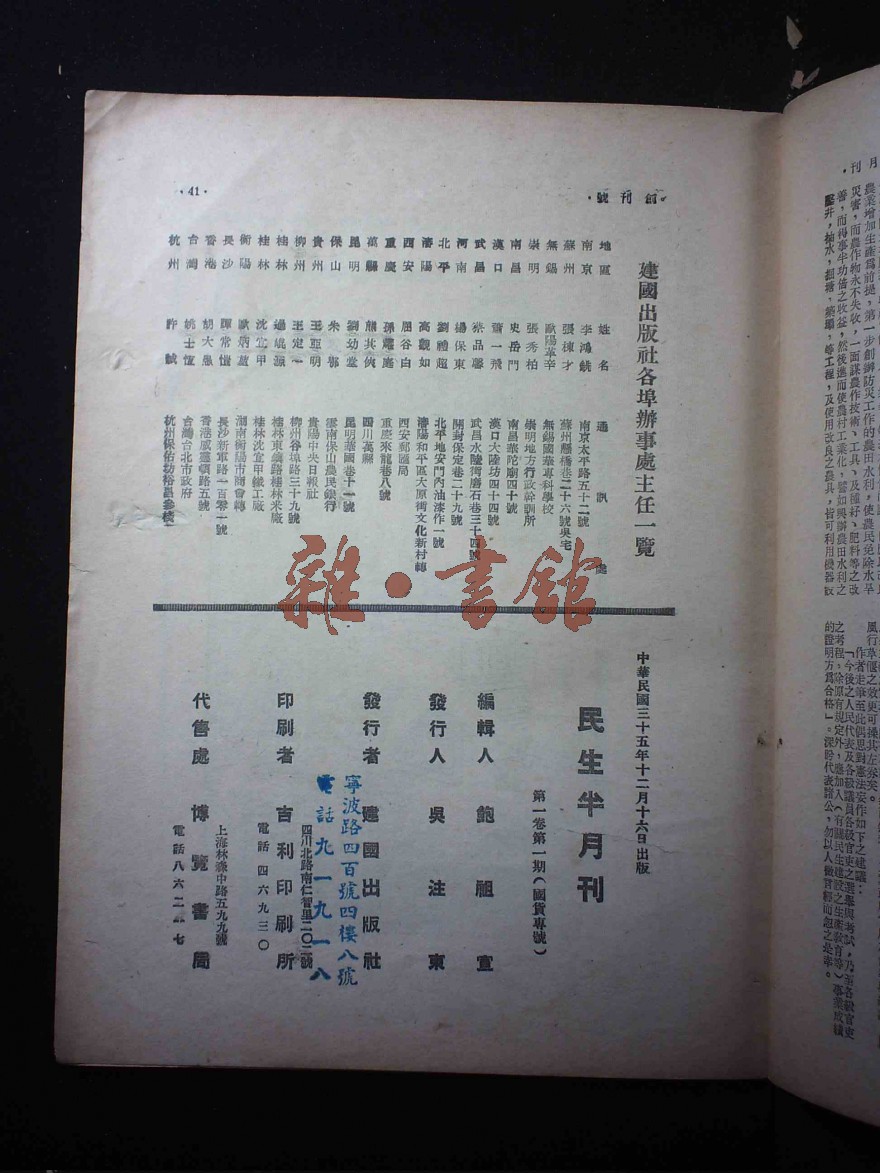 創刊號·
·41·
建國出版社各埠辦事處主任一覽
地區 姓名 通訊處
南京 李鴻毓 南京太平路五十二號
蘇州 張棟才 蘇州懸橋巷二十六號吳宅
無錫 歐陽革辛 無錫國華專科學校
崇明 張秀柏 崇明地方行政幹訓所
南昌 史岳門 南昌華陀廟四十號
漢口 蕭一飛 漢口大陸坊四十四號
武昌 武昌水陸街磨石巷三十四號
河南 楊保東 開封保定巷二十九號
北平 劉禮超 北平地安門內油漆作一號
瀋陽 高觀如 瀋陽和平區大原街文化新村轉
西安 屈谷白 西安郵匯局
重慶 孫耀庭 重慶來龍巷八號
萬縣 熊其俠 四川萬縣
昆明 劉幼堂 昆明華國巷十一號
保山 朱鄂 雲南保山農民銀行
貴州 王亞明 貴陽中央日報社
柳州 王定一 柳州谷埠路三十九號
桂林 楊焜源 桂林東鎮路桂林米廠
桂林 沈宜甲 桂林沈宜甲鐵工廠
衡陽 歐炳薰 湖南衡陽市商會轉
長沙 譚常愷 長沙新軍路一百零一號
香港 胡大愚 香港威靈頓路五號
台灣 姚士恆 台灣台北市政府
杭州 許 杭州保佑坊裕昌參號
雜·書館
中華民國三十五年十二月十六日出版
民生半月刊
第一卷第一期(國貨專號)
編輯人 鮑祖宣
發行人 吳注東
發行者 建國出版社
寧波路四百號四樓八號
電話九一九一八
印刷者 吉利印刷所
四川北路南仁智里二〇二號
電話 四六九三〇
代售處 博覽書局
上海林森中路五九九號
月刊·
農業增加生產為前提，第一步創辦防災工作的農田水利，使農民免除水旱
災害，而農作物永不失收，一面謀農作技術、工具、及種籽、肥料等之改
善，而得事半功倍之收益，然後進而使農村工業化，譬如興辦農田水利之
鑿井，抽水，掘塘，築壩，等工程，及使用改良之農具，皆可利用機器
風行草偃之效更可操其左券矣。
作者走筆至此偶思對憲法妄作如下之建議：
「今後之人民代表及各級議員各級官吏之選舉與考試，乃至各級官吏
之考程，除原有規定外，應加入（有關民生建設之生產教育等）事業成績
的證明方為合格」。深盼代表諸公，勿以人微言輕而忽之是幸。